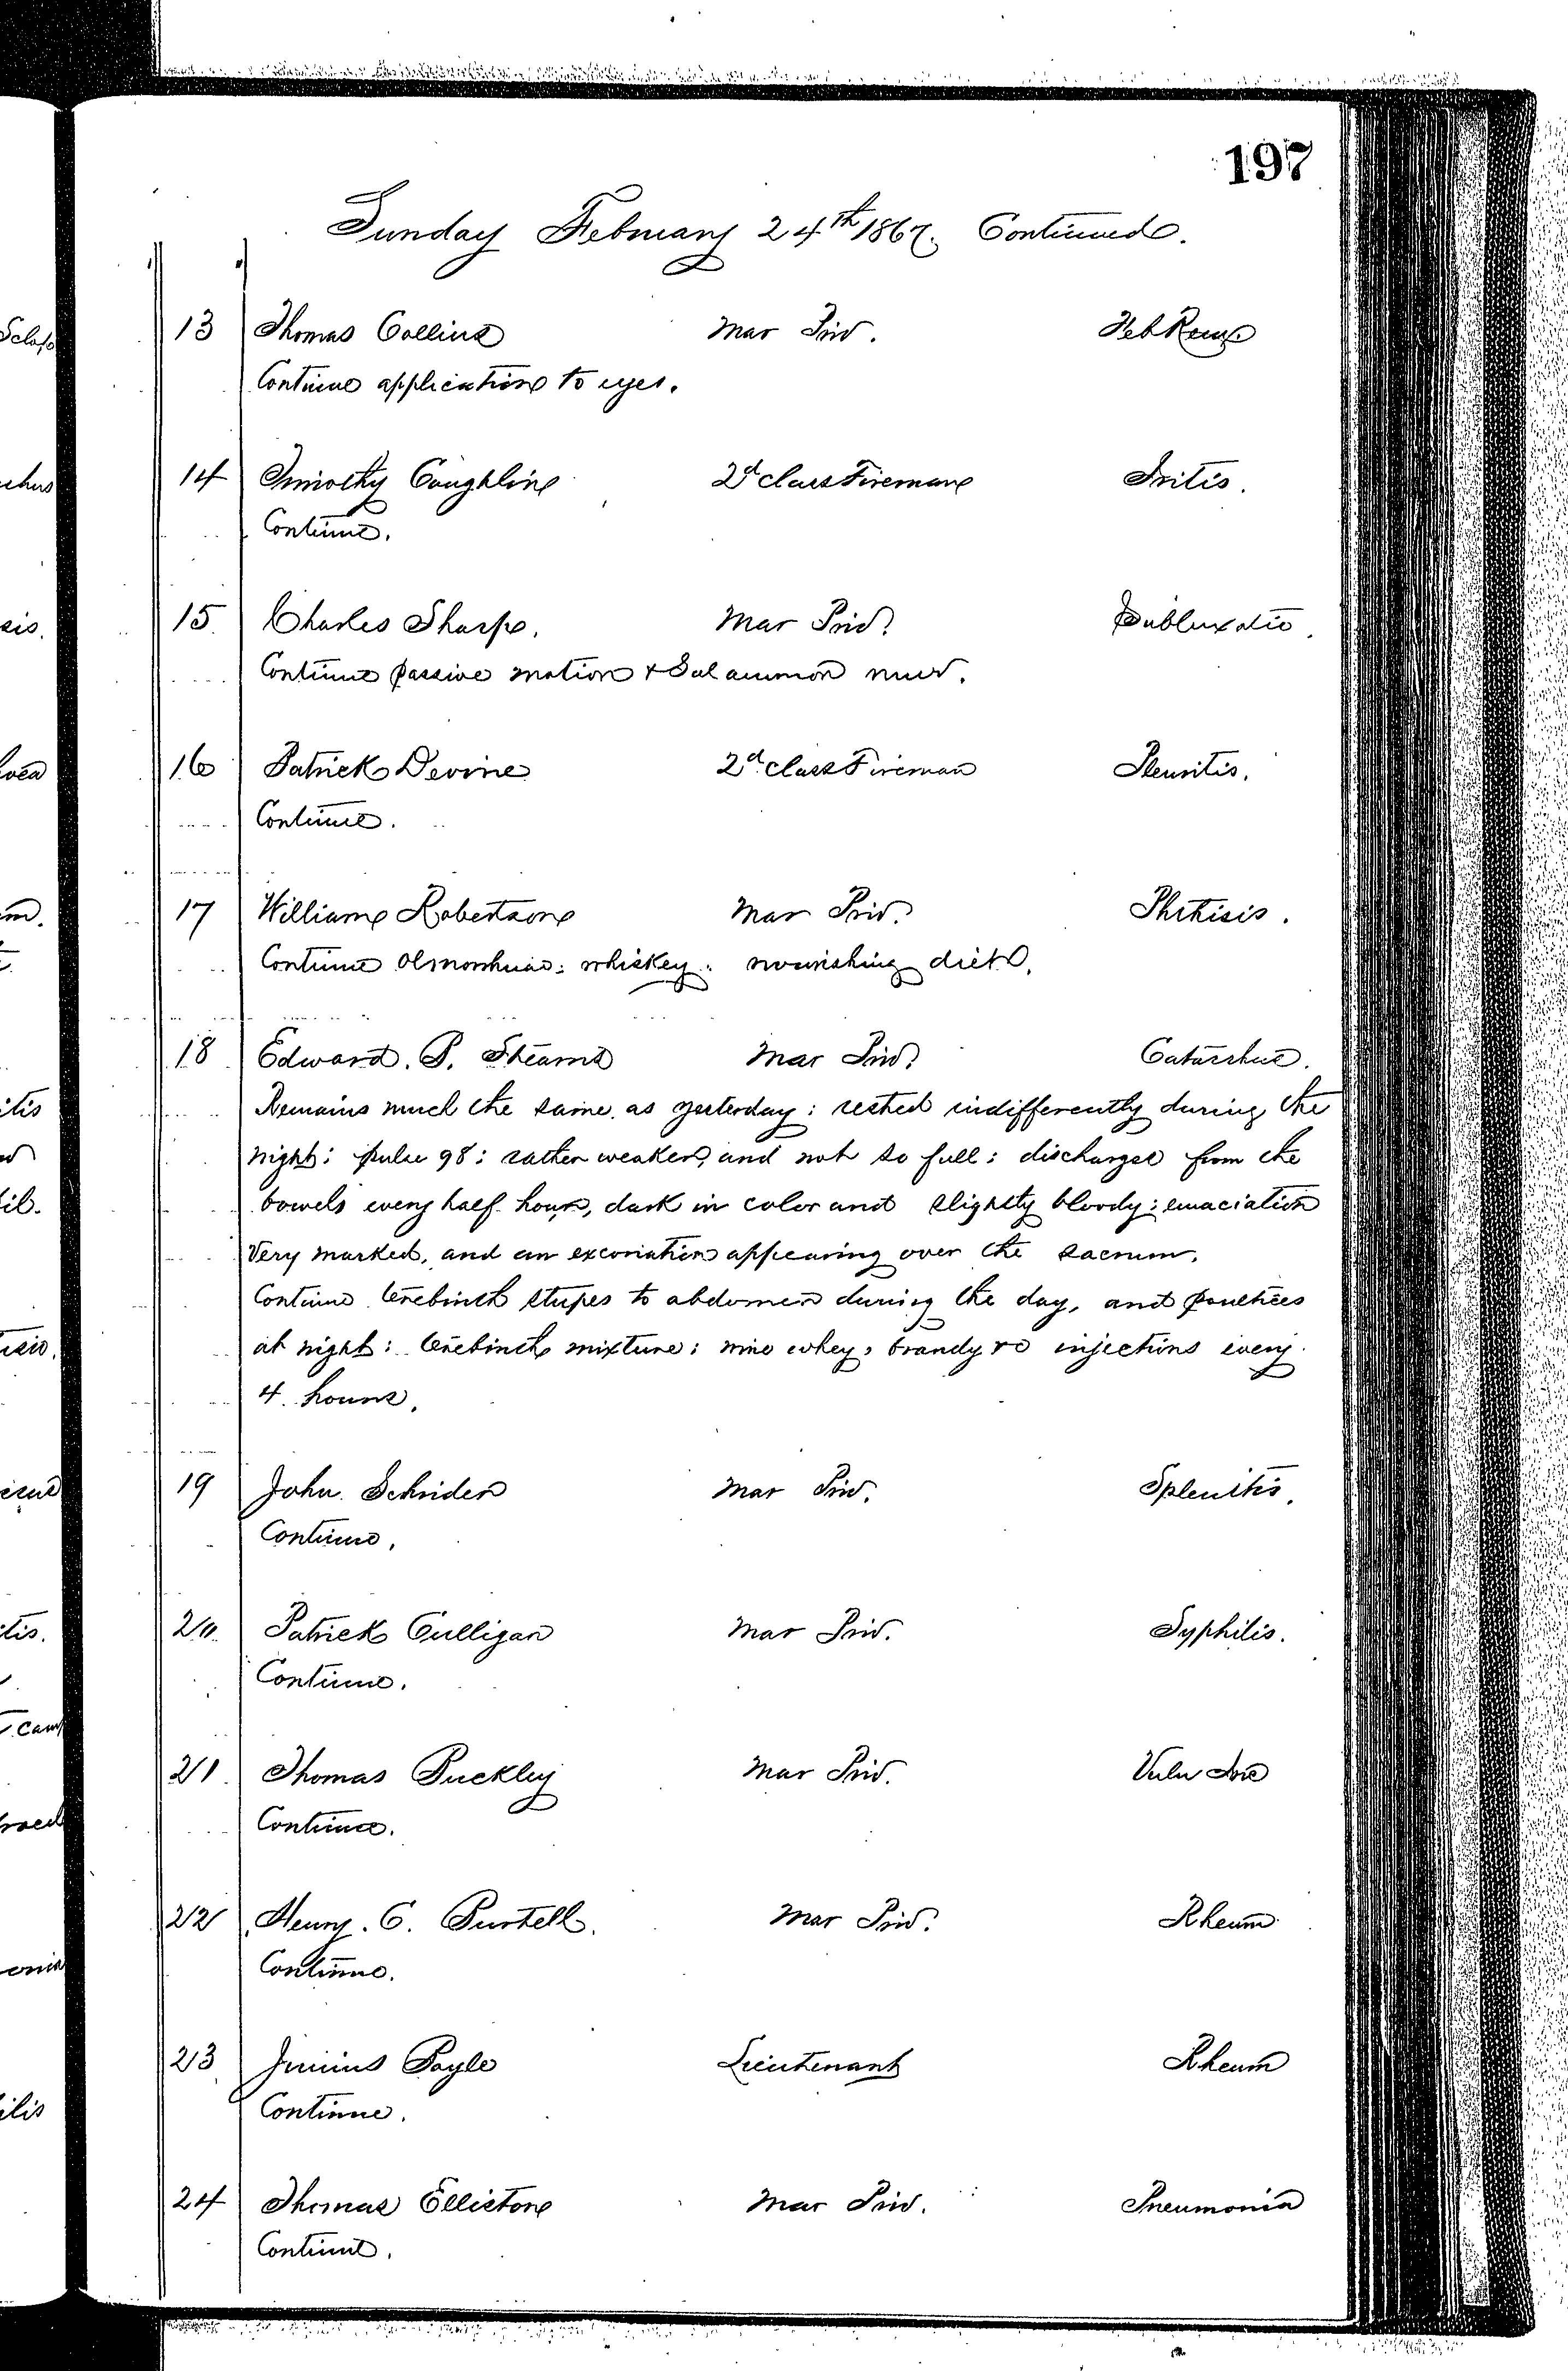 197
Sunday February 24th 1867. Continued.
13 Thomas Collins Mar Priv. Feb Rem
Continue application to eyes.
14 Timothy Coughlin 2d class Fireman Iritis.
Continue.
15 Charles Sharp. Mar Priv. Subluxatio.
Continue passive motion & Sal ammon mur.
16 Patrick Devine 2d class Fireman Pleuritis.
Continue.
17 William Robertson Mar Priv. Phthisis.
Continue Ol morrhuae: whiskey: nourishing diet.
18 Edward. P. Stearns Mar Priv. Catarrhus.
Remains much the same as yesterday: rested indifferently during the
night: pulse 98: rather weaker, and not so full: discharges from the
bowels every half hour, dark in color and slightly bloody: emaciation
very marked, and an excoriation appearing over the sacrum.
Continue terebinth stupes to abdomen during the day, and poultices
at night: terebinth mixture: wine whey, brandy &c injections every
4 hours.
19 John Schrider Mar Priv. Splenitis.
Continue.
20 Patrick Culligan Mar Priv. Syphilis.
Continue.
21 Thomas Puckley Mar Priv. Vuln
Continue.
22 Henry. C. Purtell. Mar Priv. Rheum
Continue.
23 Junius Lieutenant Rheum
Continue.
24 Thomas Elliston Mar Priv. Pneumonia
Continue.